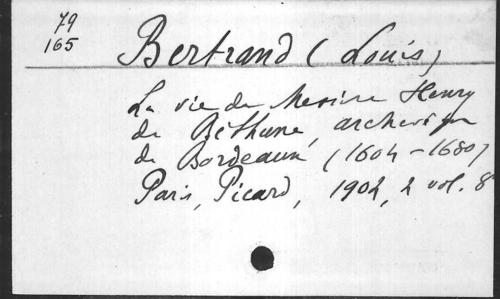 79
165
Bertrand (Louis)
La vie de Messire Henry
de Béthune, archevêque
de Bordeaux (1604-1680)
Paris, Picard, 1902, 2 vol. 8°